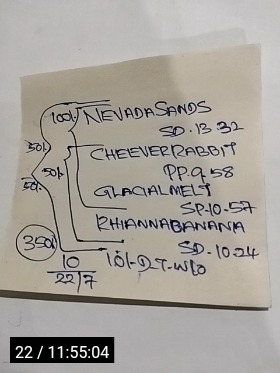 100/- NEVADA SANDS
SD. 13.32
50/- CHEEVER RABBIT
50/- PP. 9.58
50/- GLACIAL MELT
SP-10-57
RHIANNA BANANA
350/- SD. 10.24
10 10/- Q.T. W/O
22/7
22 / 11:55:04